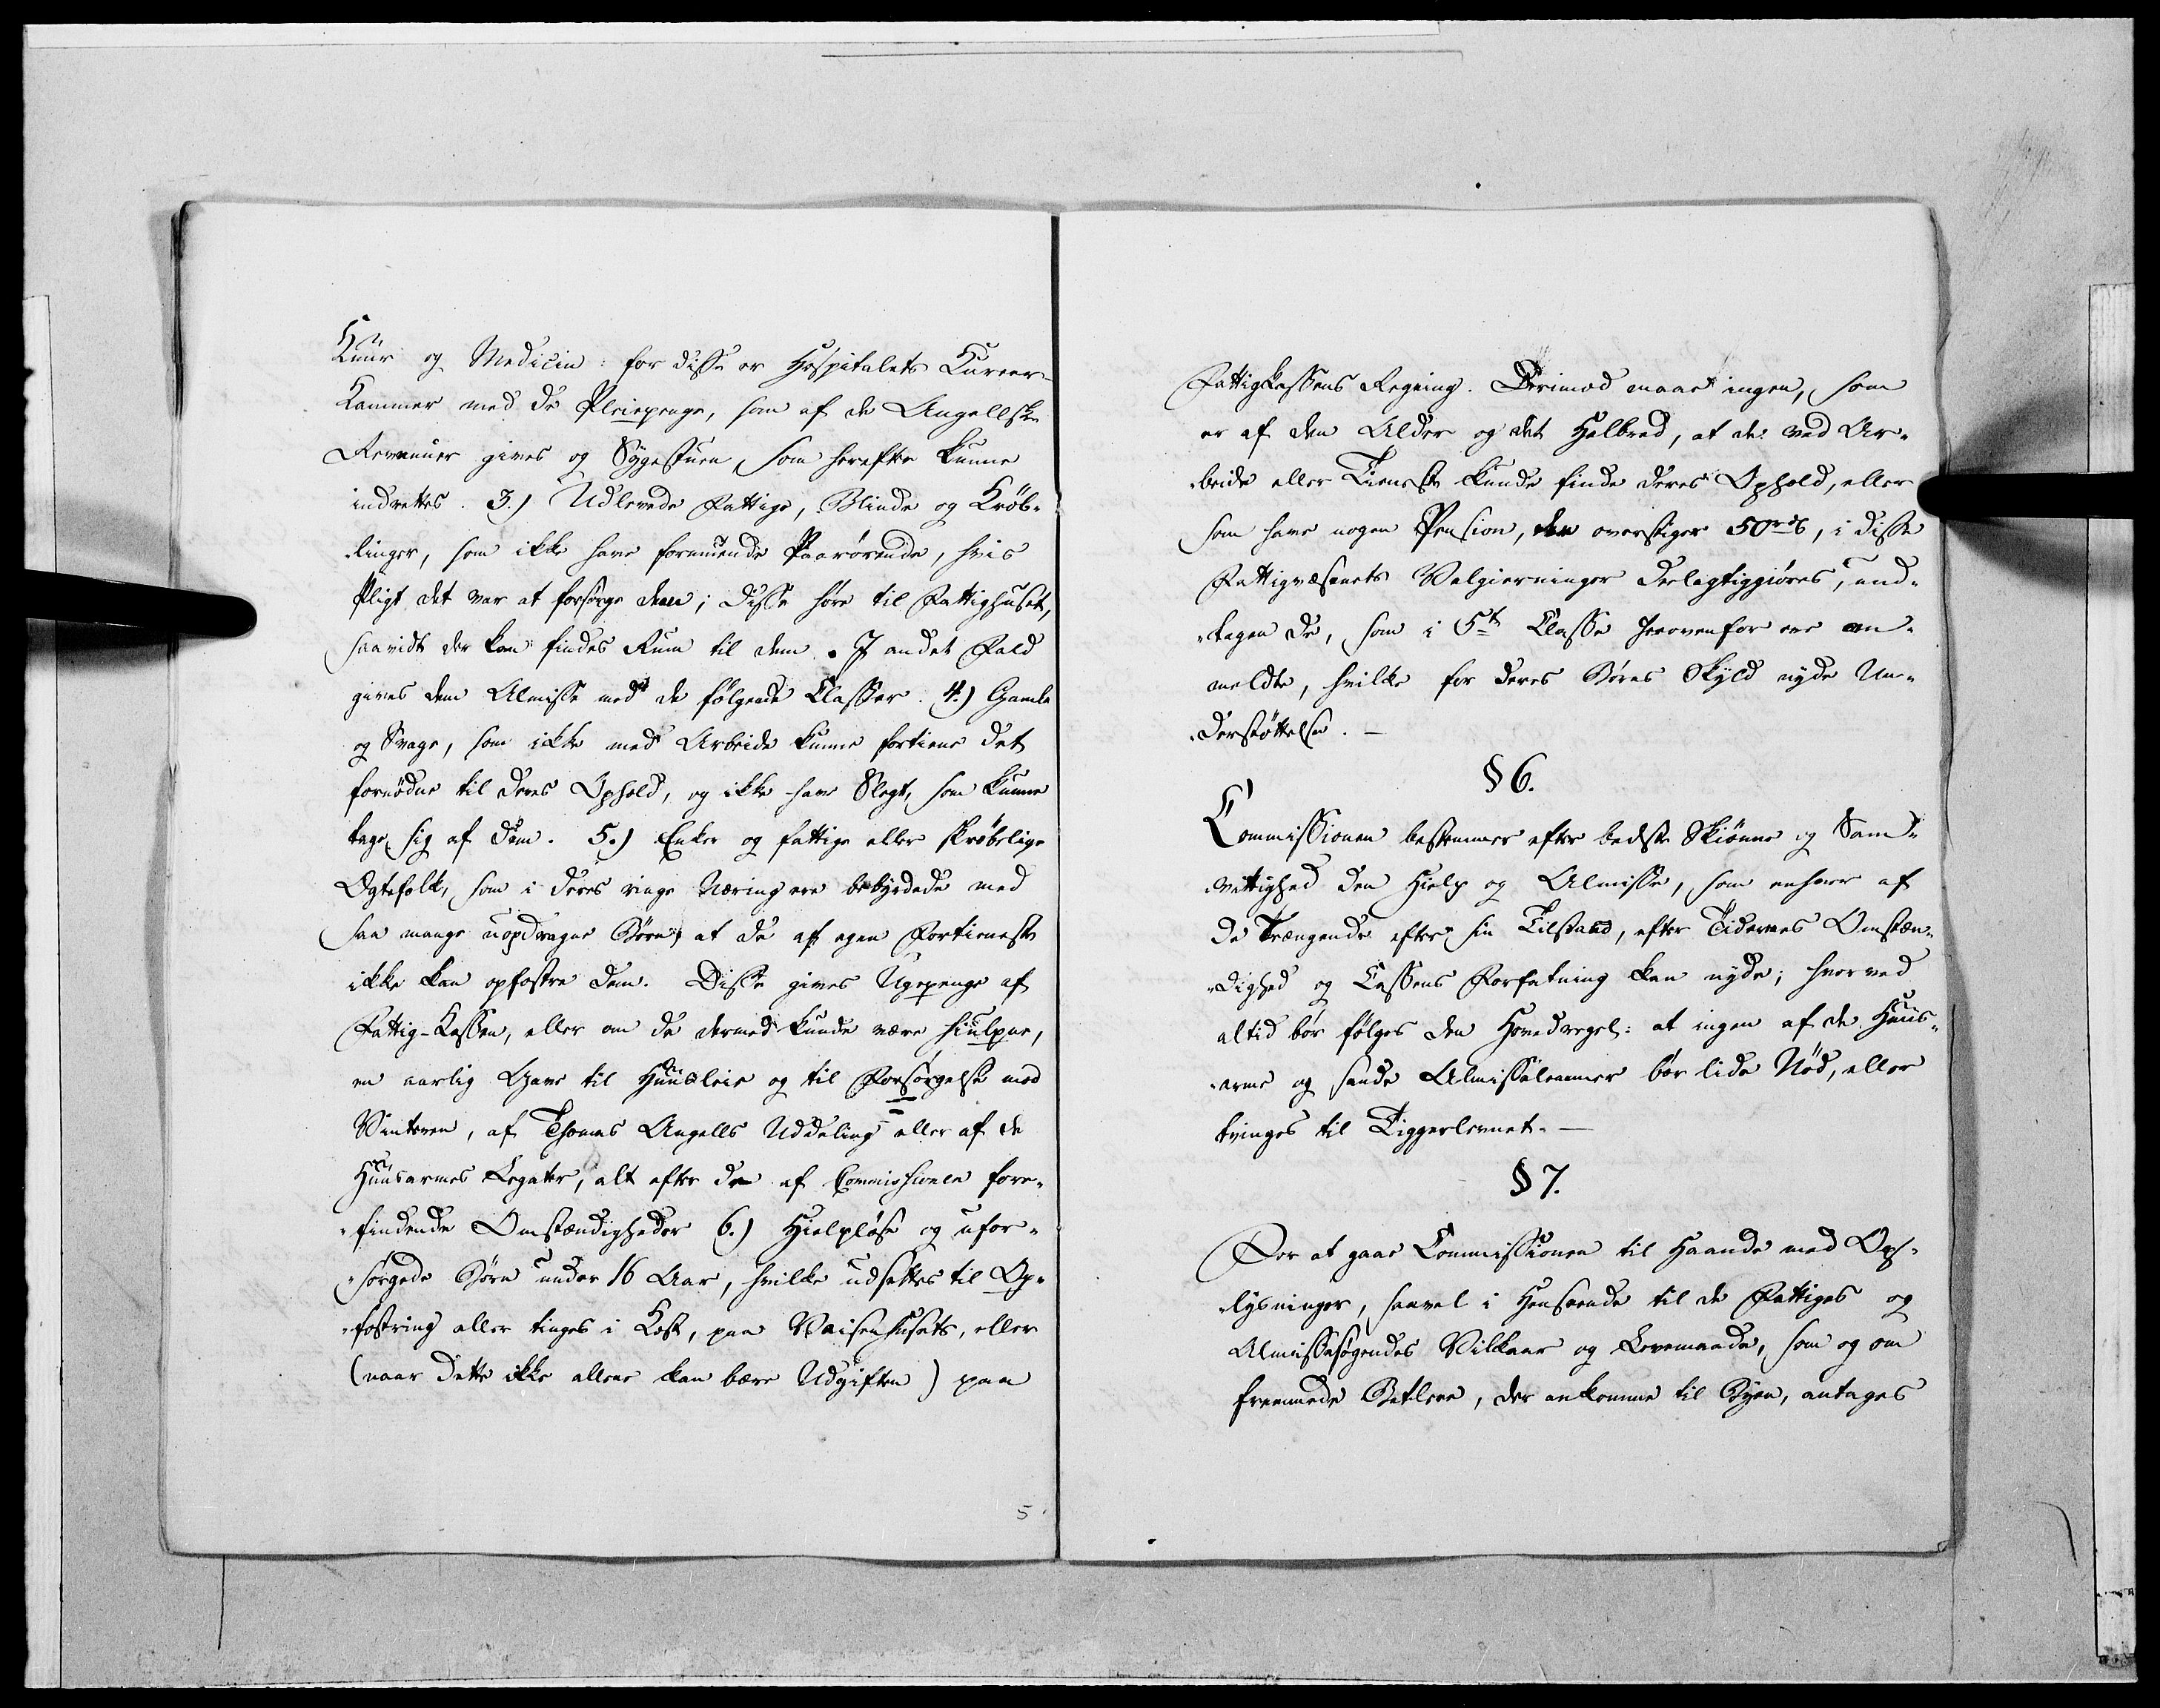 Kuur og Medicin: for disse er Hospitalets Kureer-
Kammer med de Pleiepenge, som af de Angellske
Revenuer gives og Sygestuen, som herefter kunne
indrettes. 3.) Udlevede Fattige, Blinde og Krøb-
-linger, som ikke have formuende Paarørende, hvis
Pligt det var at forsørge dem; disse høre til Fattighuset,
saavidt der kan findes Rum til dem. I andet Fald
gives dem Almisse med de følgende Classer. 4.) Gamle
og Svage, som ikke med Arbeide kunne fortiene det
fornødne til deres Ophold, og ikke have Slegt, som kunne
tage sig af dem. 5.) Enker og fattige eller skrøbelige
Ægtefolk, som i deres ringe Næring ere bebyrdede med
saa mange uopdragne Børn, at de af egen Fortieneste
ikke kan opfostre dem. Disse gives Ugepenge af
Fattig-Kassen, eller om de dermed kunde være hiulpne,
en aarlig Gave til Huusleie og til Forsørgelse mod
Vinteren, af Thomas Angells Uddeling eller af de
Huusarmes Legater, alt efter de af Commissionen fore-
-findende Omstændigheder 6.) Hielpløse og ufor-
-sørgede Børn under 16 Aar, hvilke udsættes til Op-
-fostring eller tinges i Kost, paa Vaisenhusets, eller
(naar dette ikke allene kan bære Udgiften) paa
5.
Fattigkassens Regning. Derimod maae ingen, som
er af den Alder og det Helbred, at de ved Ar-
-beide eller Tieneste kunde finde deres Ophold, eller
som have nogen Pension, der overstiger 50 rd, i disse
Fattigvæsenets Velgierninger deelagtiggiøres, und-
-tagen de, som i 5te Classe herovenfor ere an-
meldte, hvilke for deres Børns Skyld nyde Un-
-derstøttelse. —
§ 6.
Commissionen bestemmer efter bedste Skiønne og Sam-
-vittighed den Hielp og Almisse, som enhver af
de Trængende efter sin Tilstand, efter Tidernes Omstæn-
-dighed og Cassens Forfatning kan nyde; hvorved
altid bør følges den Hovedregel: at ingen af de Huus-
-arme og sande Almisselemmer bør lide Nød, eller
tvinges til Tiggerlevnet. —
§ 7.
For at gaae Commissionen til Haande med Op-
-lysninger, saavel i Henseende til de Fattiges og
Almissesøgendes Vilkaar og Levemaade, som og om
fremmede Betlere, der ankomme til Byen, antages